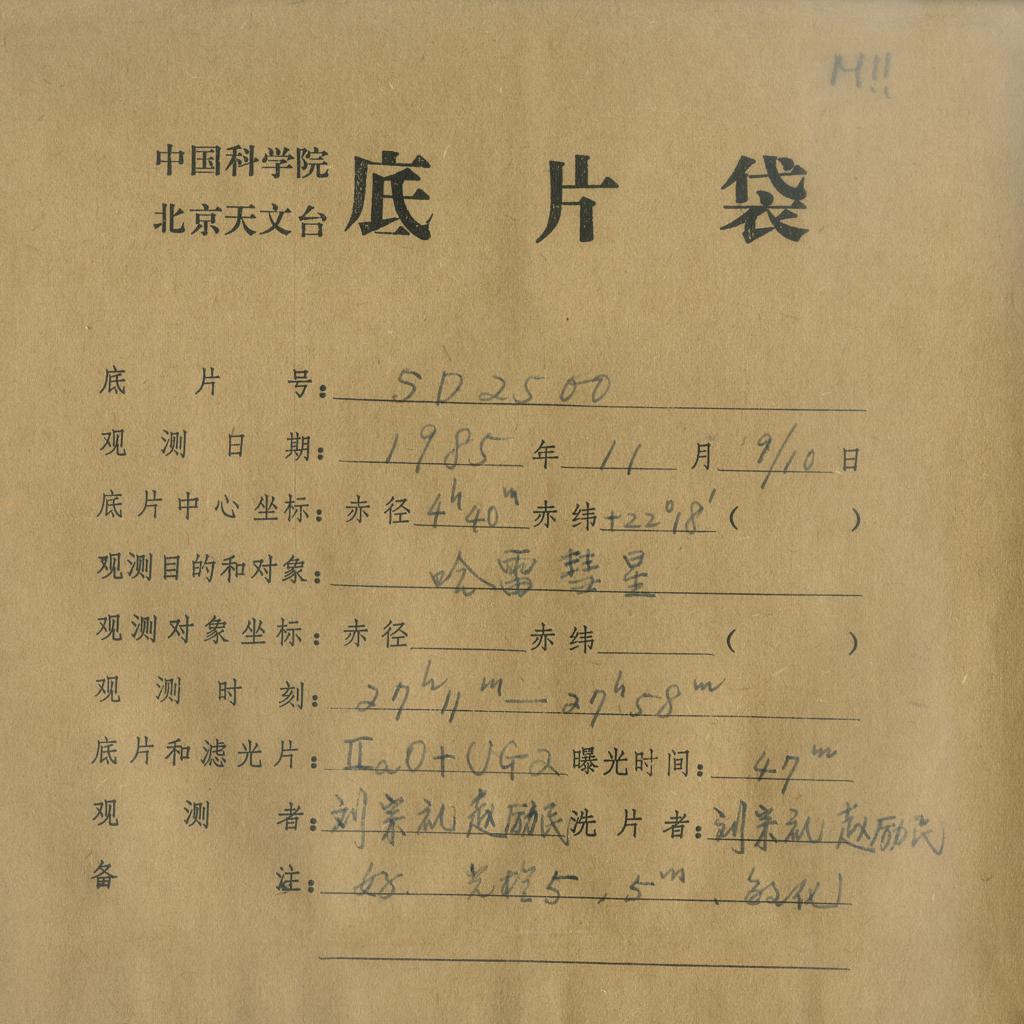 M!!
中国科学院
北京天文台
底片袋
底片号: SD2500
观测日期: 1985年11月9/10日
底片中心坐标: 赤径4ʰ40ᵐ赤纬+22°18′( )
观测目的和对象: 哈雷彗星
观测对象坐标: 赤径 赤纬 ( )
观测时刻: 27ʰ11ᵐ—27ʰ58ᵐ
底片和滤光片: ⅡaO+UG2 曝光时间: 47ᵐ
观测者: 刘宗礼 赵励民 洗片者: 刘宗礼 赵励民
备注: 好. 光栏5, 5ᵐ.